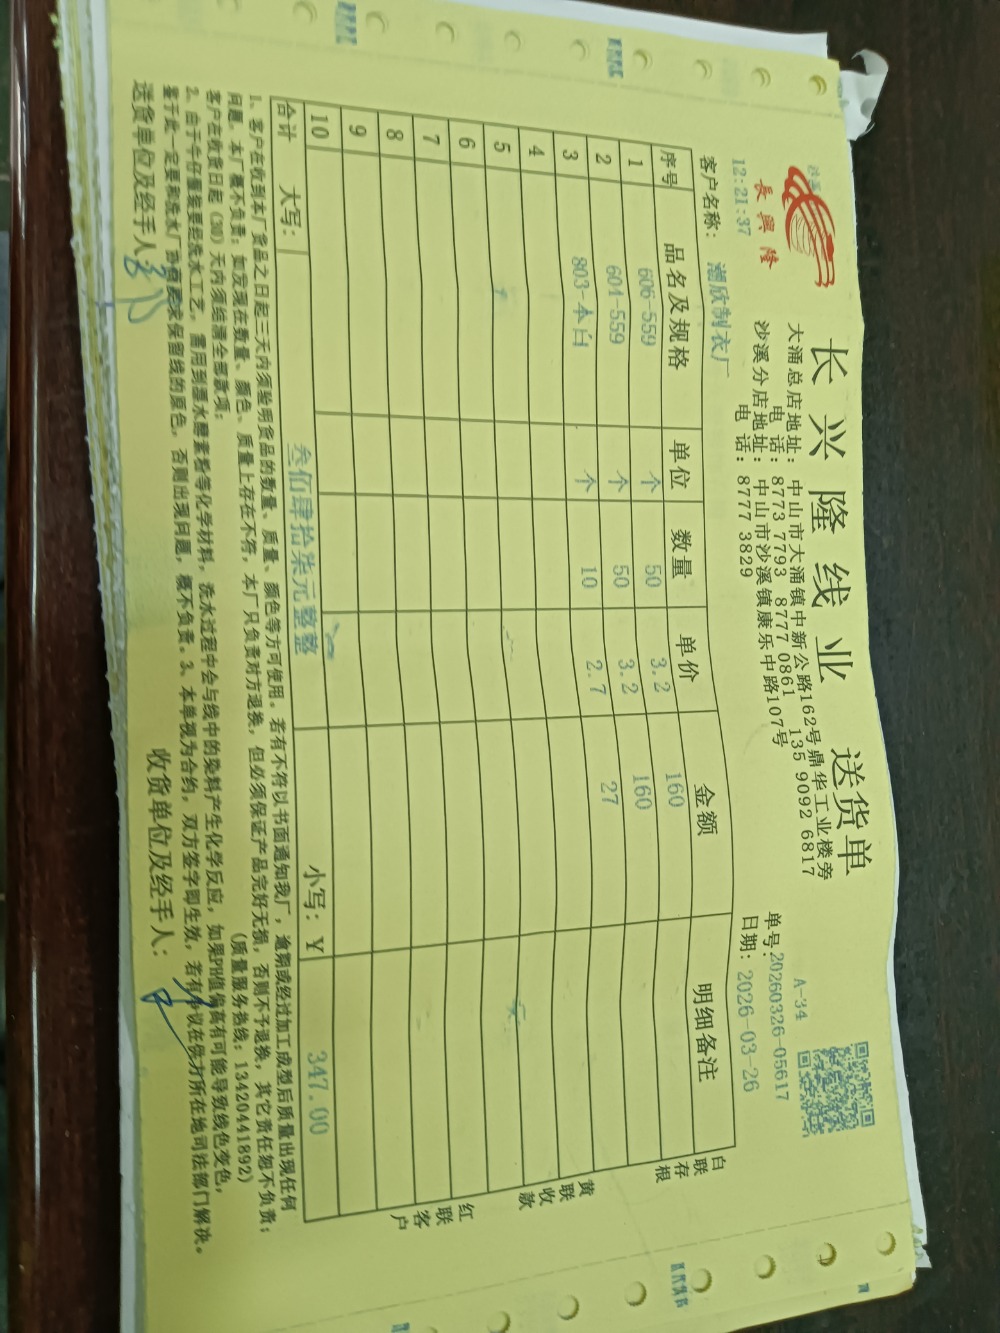 長興隆
长兴隆线业 送货单
大涌总店地址: 中山市大涌镇中新公路162号鼎华工业楼旁
电 话: 8773 7793 8777 0861 135 9092 6817
沙溪分店地址: 中山市沙溪镇康乐中路107号
电 话: 8777 3829
A-34
单号:20260326-05617
12:21:37
日期: 2026-03-26
客户名称: 潮欣制衣厂
序号 品名及规格 单位 数量 单价 金额 明细备注
1 606-559 个 50 3.2 160
2 604-559 个 50 3.2 160
3 803-本白 个 10 2.7 27
4
5
6
7
8
9
10
合计 大写: 叁佰肆拾柒元整整 小写: ¥ 347.00
白联存根
黄联收款
红联客户
1、客户在收到本厂货品之日起三天内须验明货品的数量、质量、颜色等方可使用。若有不符以书面通知我厂，逾期或经过加工成型后质量出现任何
问题，本厂概不负责；如发现在数量、颜色、质量上存在不符，本厂只负责对方退换，但必须保证产品完好无损，否则不予退换，其它责任恕不负责；
客户在收货日起（30）天内须结清全部款项； (质量服务热线: 13420441892)
2、由于牛仔服装要经洗水工艺，需用到漂水酵素粉等化学材料，洗水过程中会与线中的染料产生化学反应，如果PH值偏高有可能导致线色变色，
鉴于此一定要和洗水厂协商要求保留线的原色，否则出现问题，概不负责。3、本单视为合约，双方签字即生效，若有争议在供方所在地司法部门解决。
送货单位及经手人: 收货单位及经手人: